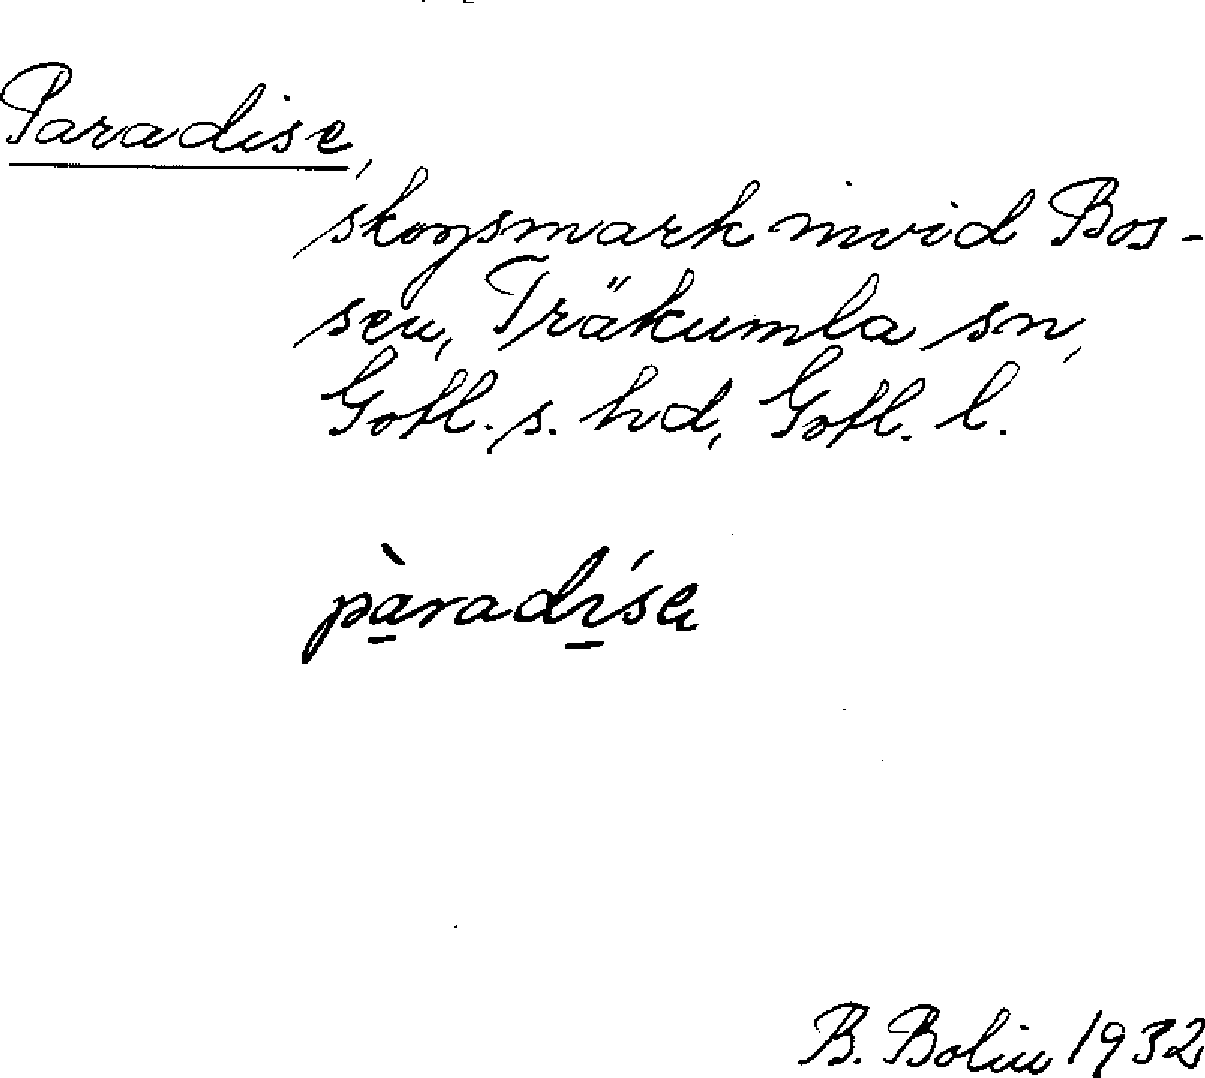 Paradise,
skogsmark invid Bos-
sen, Träkumla sn,
Gotl. s. hd, Gotl. l.
pàradísa
B. Bolin 1932